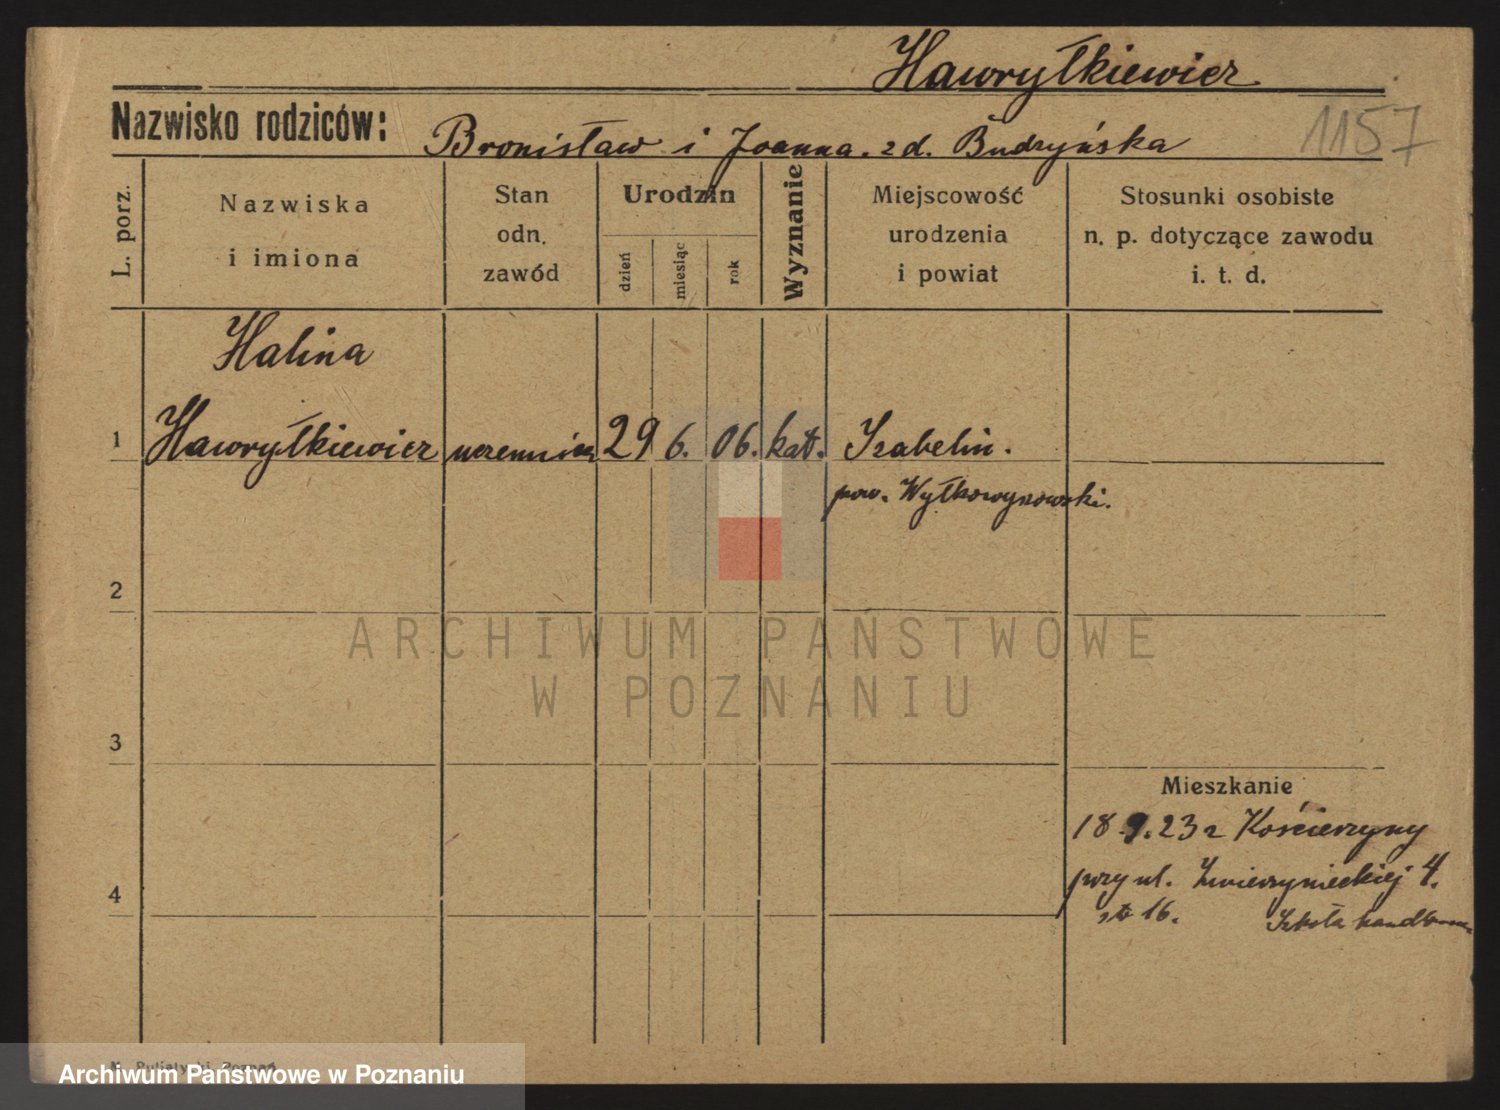 Hawryłkiewicz
Nazwisko rodziców:
Bronisław i Joanna. z d. Budzyńska
1157
L. porz.
Nazwiska
i imiona
Stan
odn.
zawód
Urodzin
dzień
miesiąc
rok
Wyznanie
Miejscowość
urodzenia
i powiat
Stosunki osobiste
n. p. dotyczące zawodu
i. t. d.
Halina
1 Hawryłkiewicz uczennica 29 6. 06. kat. Izabelin.
pow. Wyłkowyszowski.
2
ARCHIWUM PAŃSTWOWE
W POZNANIU
3
Mieszkanie
18.9.23 z Kościerzyny
4
przy ul. Zwierzynieckiej 4.
16. Szkoła handlowa
Poznań
Archiwum Państwowe w Poznaniu